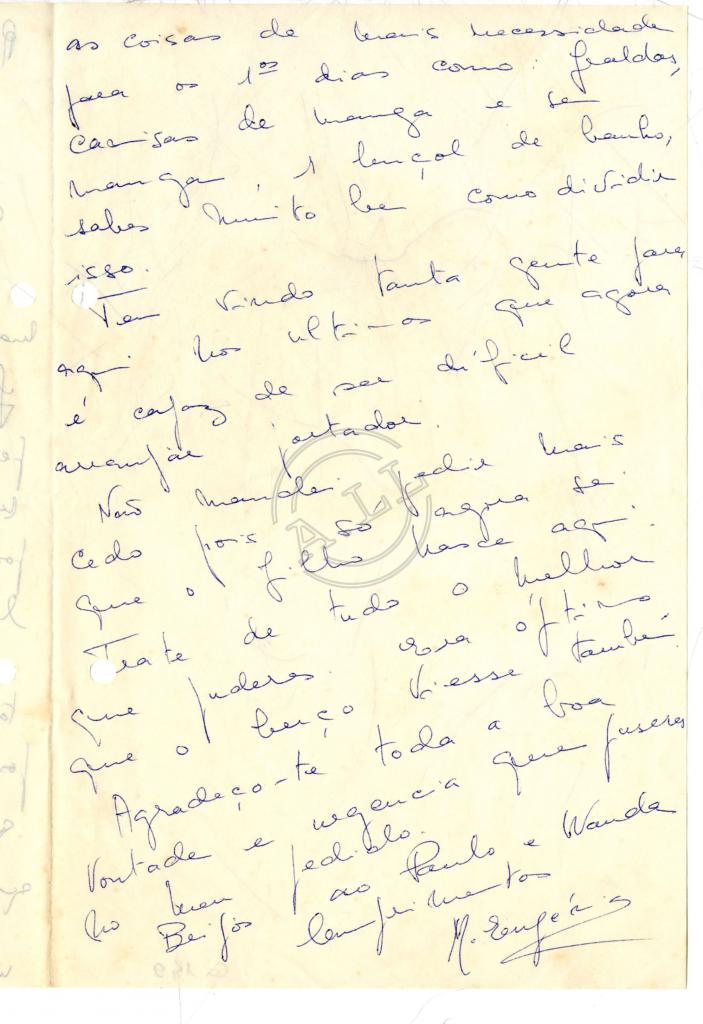 as coisas de mais necessidade
para os 1ºs dias como: fraldas,
camisas de manga e sem
manga, 1 lençol de banho,
sabes muito bem como dividir
isso.
Tem vindo tanta gente para
aqui nos ultimos que agora
é capaz de ser dificil
arranjar portador.
Não mandei pedir mais
cedo pois só agora sei
que o filho nasce aqui.
Trate de tudo o melhor
que puderes. Era óptimo
que o berço viesse também.
Agradeço-te toda a boa
vontade e urgencia que puseres
no meu pedido.
Beijos ao Paulo e Wanda
Cumprimentos
M. Eugénia
ALL